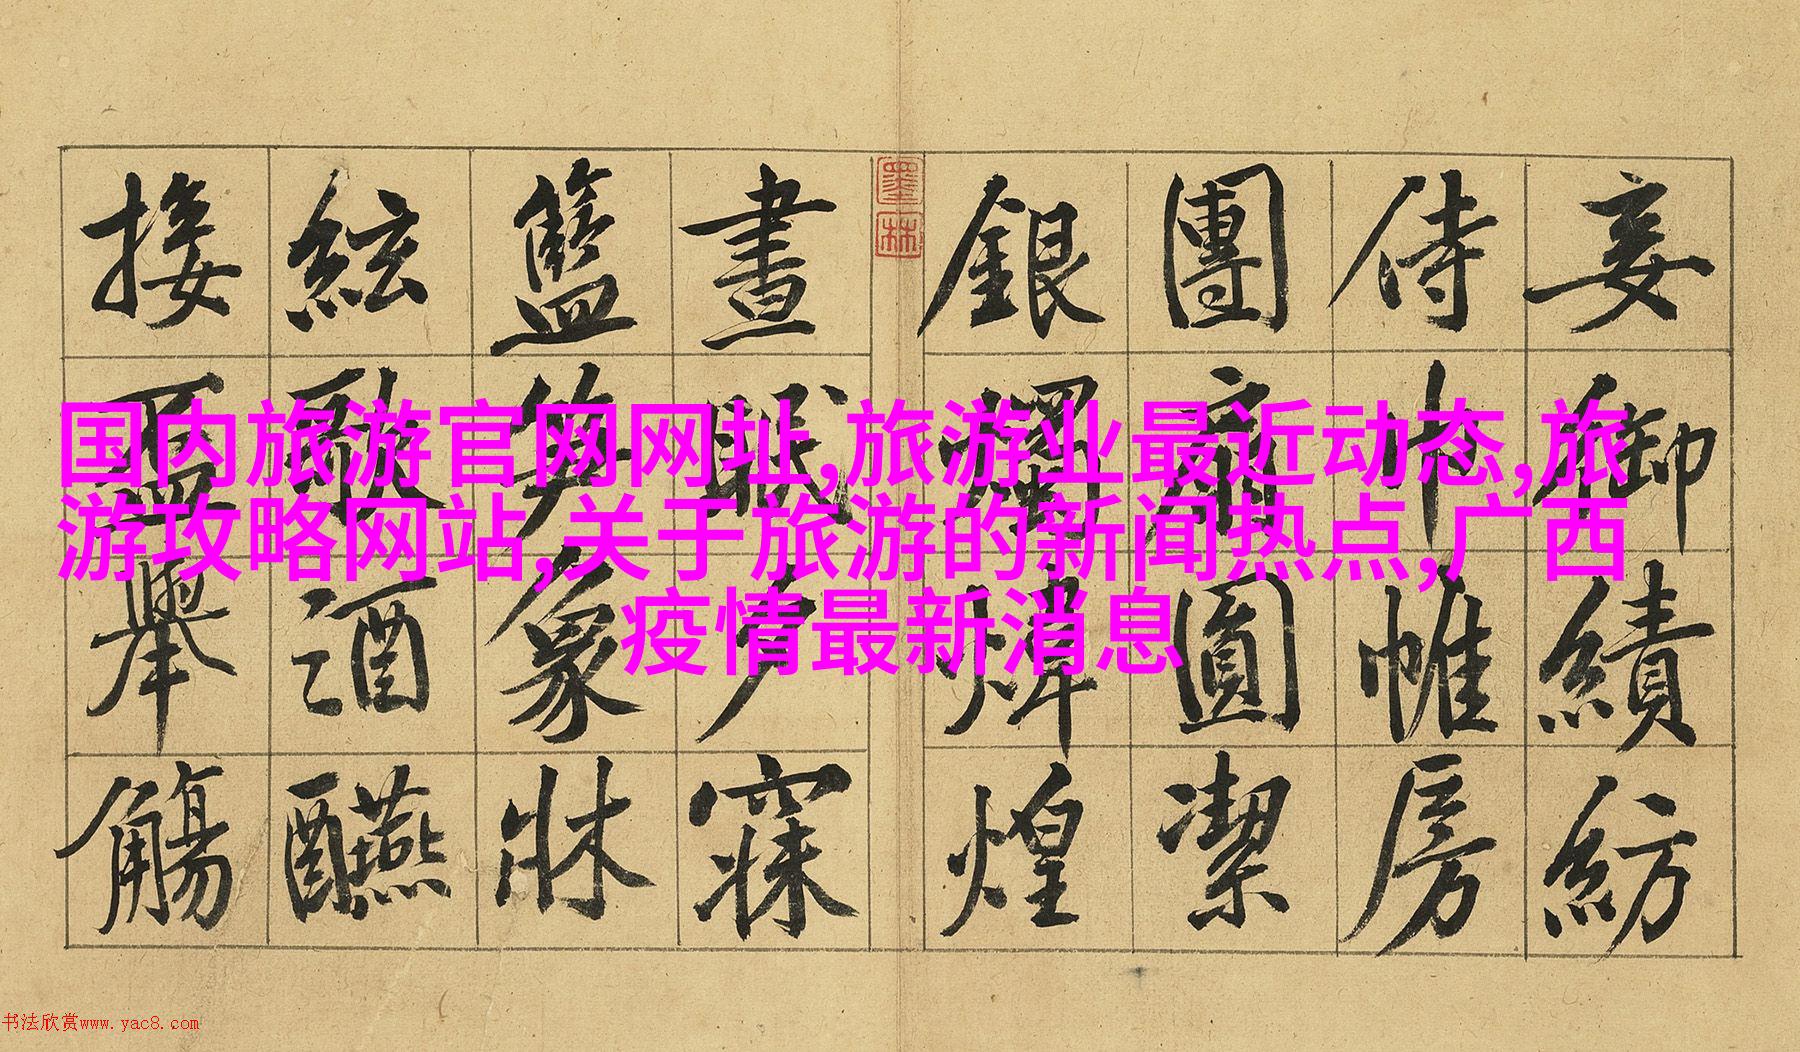 妾御績紡
侍巾帷房
團扇圓潔
銀燭煒煌
墨林
晝眠夕寐
籃笋象牀
絃歌酒醼
接盃舉觴
国内旅游官网网址,旅游业最近动态,旅
游攻略网站,关于旅游的新闻热点,广西
疫情最新消息
书法欣赏www.yac8.com